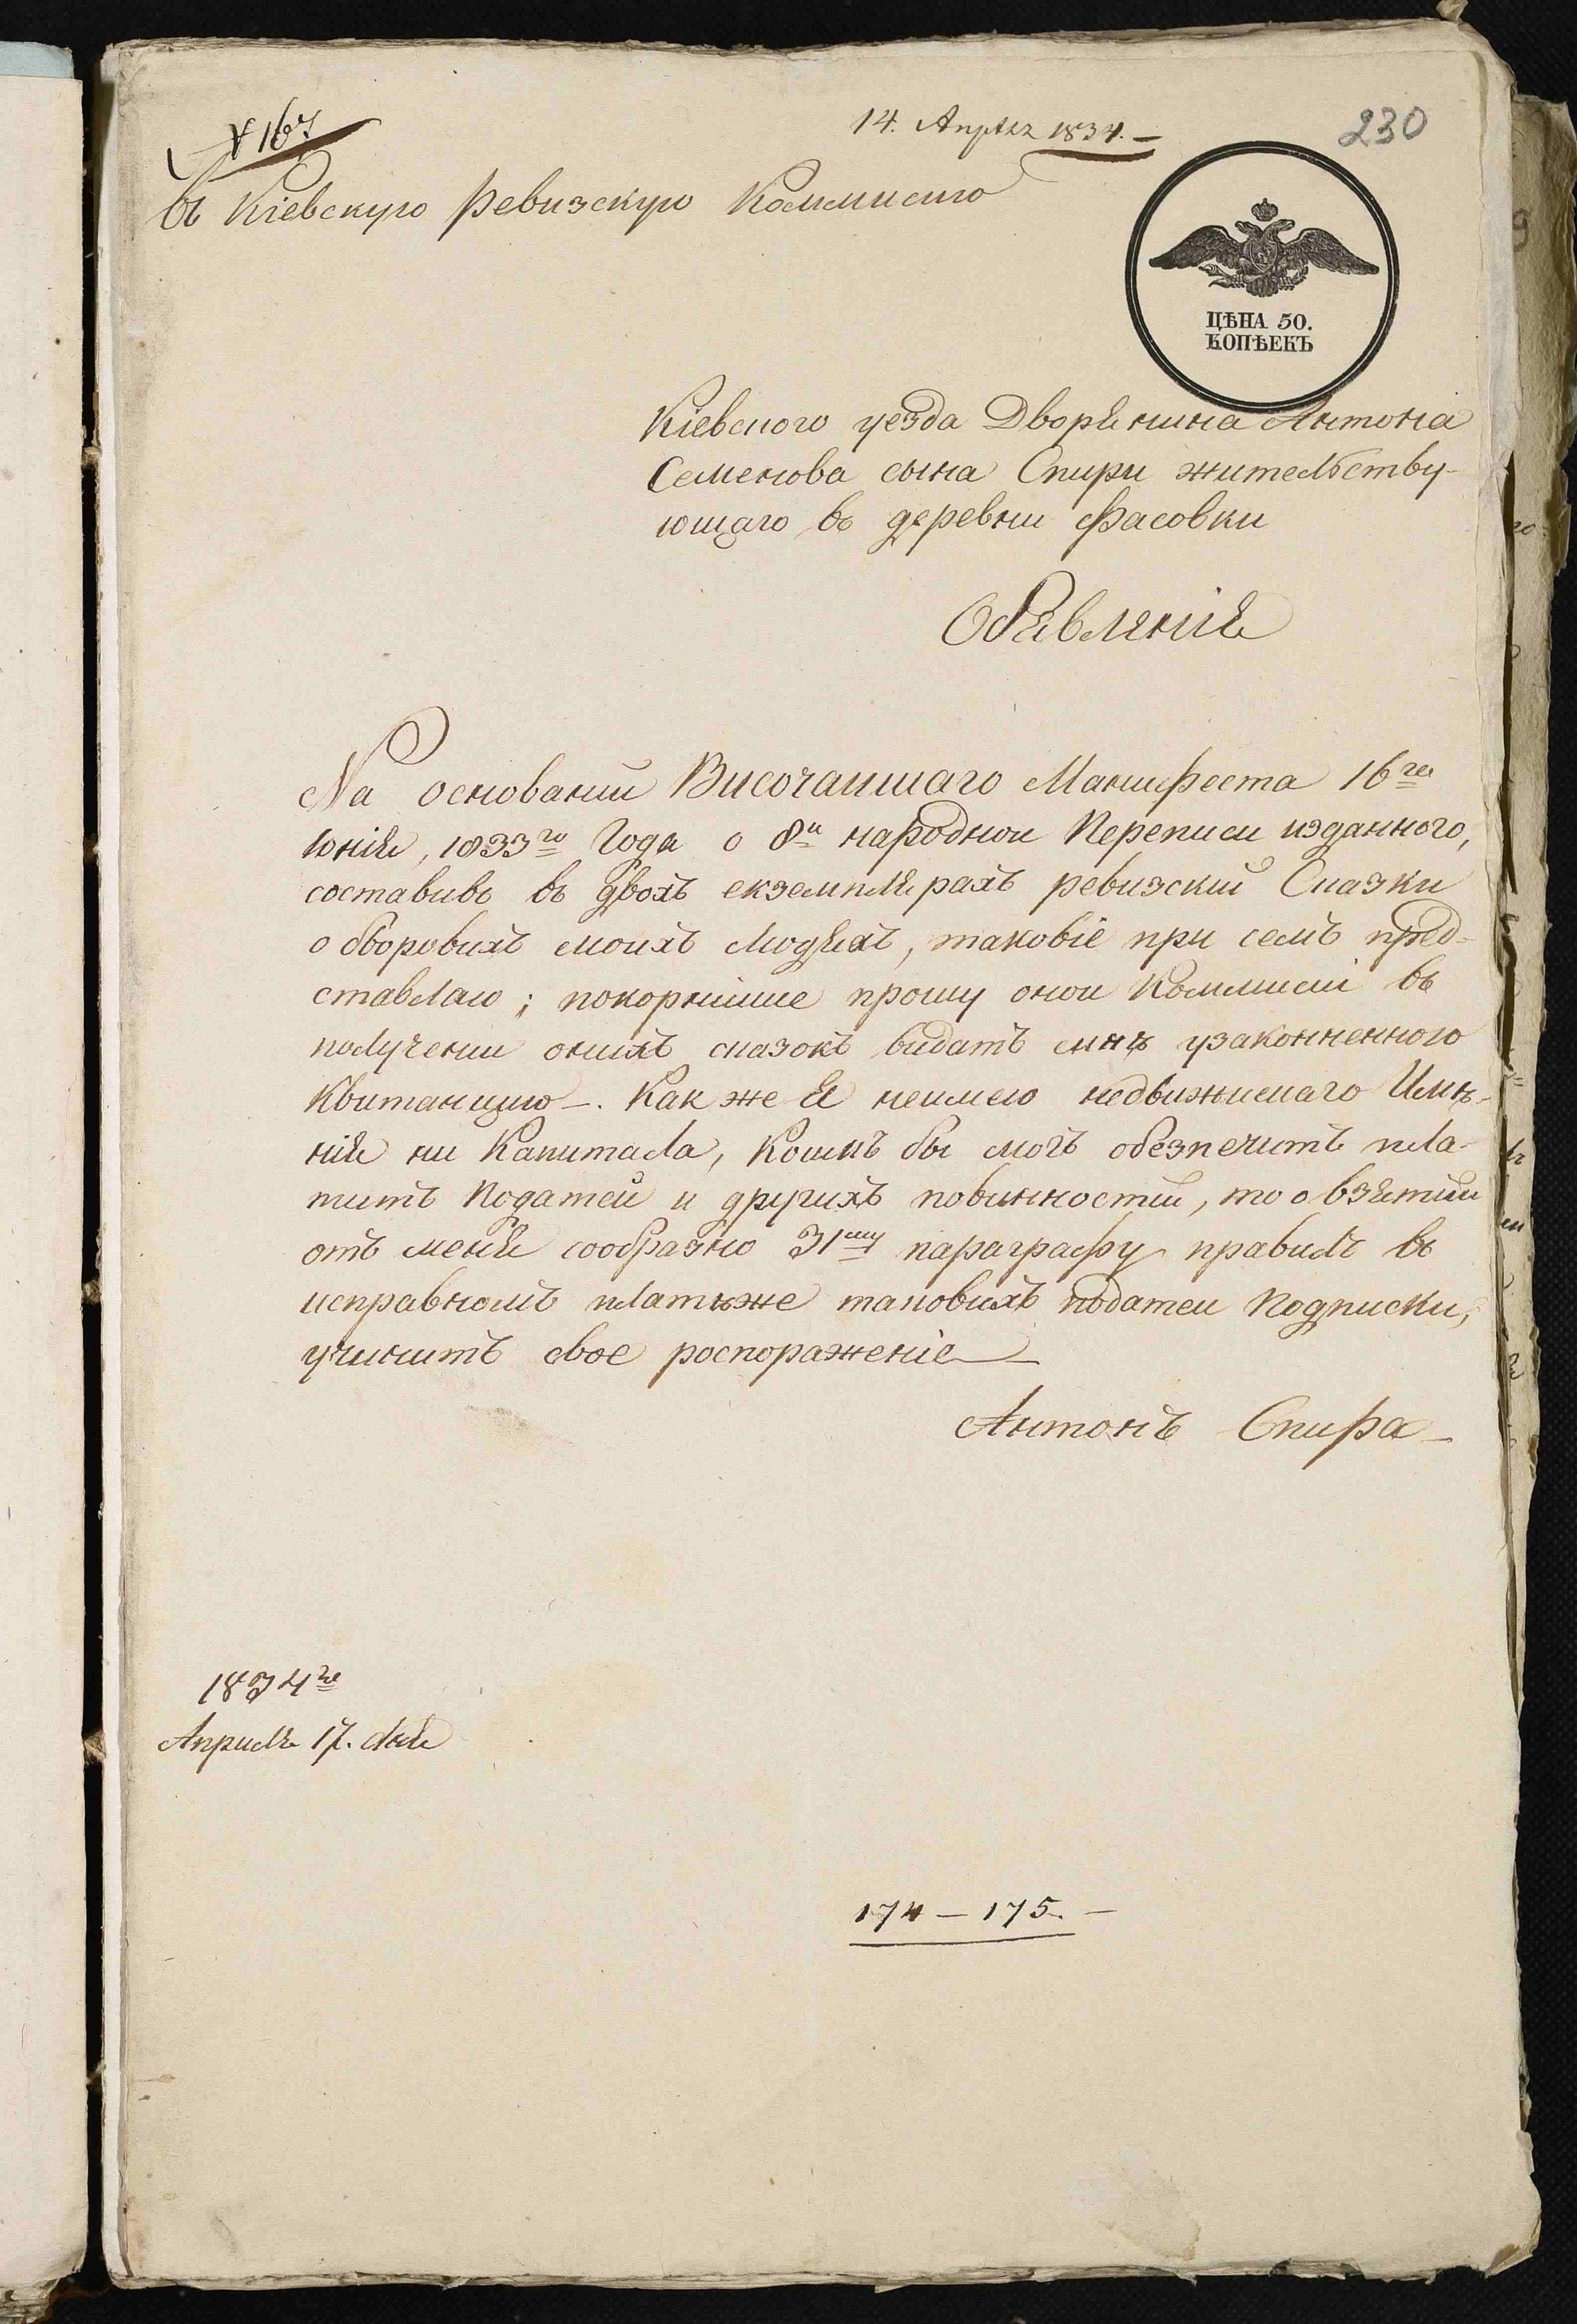 № 167
14. Апреля 1834. —
230
въ Кіевскую Ревизскую Коммисию
ЦѢНА 50.
КОПѢЕКЪ
Кіевского уезда Дворянина Антона
Семенова сына Спири жительству-
ющаго въ деревни Фасовки
Обявленія
На основаніи Височаишаго Манифеста 16го
юнія, 1833го Года о 8й народнои Переписи изданного,
составивъ въ двохъ екземплярахъ ревизскіи Сказки
о дворовихъ моихъ Людяхъ, таковіе при семъ пред-
ставлаю; покорнійше прошу онои Коммисіи въ
получении онихъ сказокъ видать мнѣ узаконненного
Квитанцию —. Как же я неимею недвижимаго Имѣ-
нія ни Капитала, Коимъ бы могъ обезпечить пла-
тить Податей и другихъ повинностій, то о взятіи
отъ меня сообразно 31му параграфу правилъ въ
исправномъ платѣже таковихъ податеи Подписки,
учинить свое роспоражение —
Антонъ Спира —
1834го
Априля 17. дня
174 — 175. —